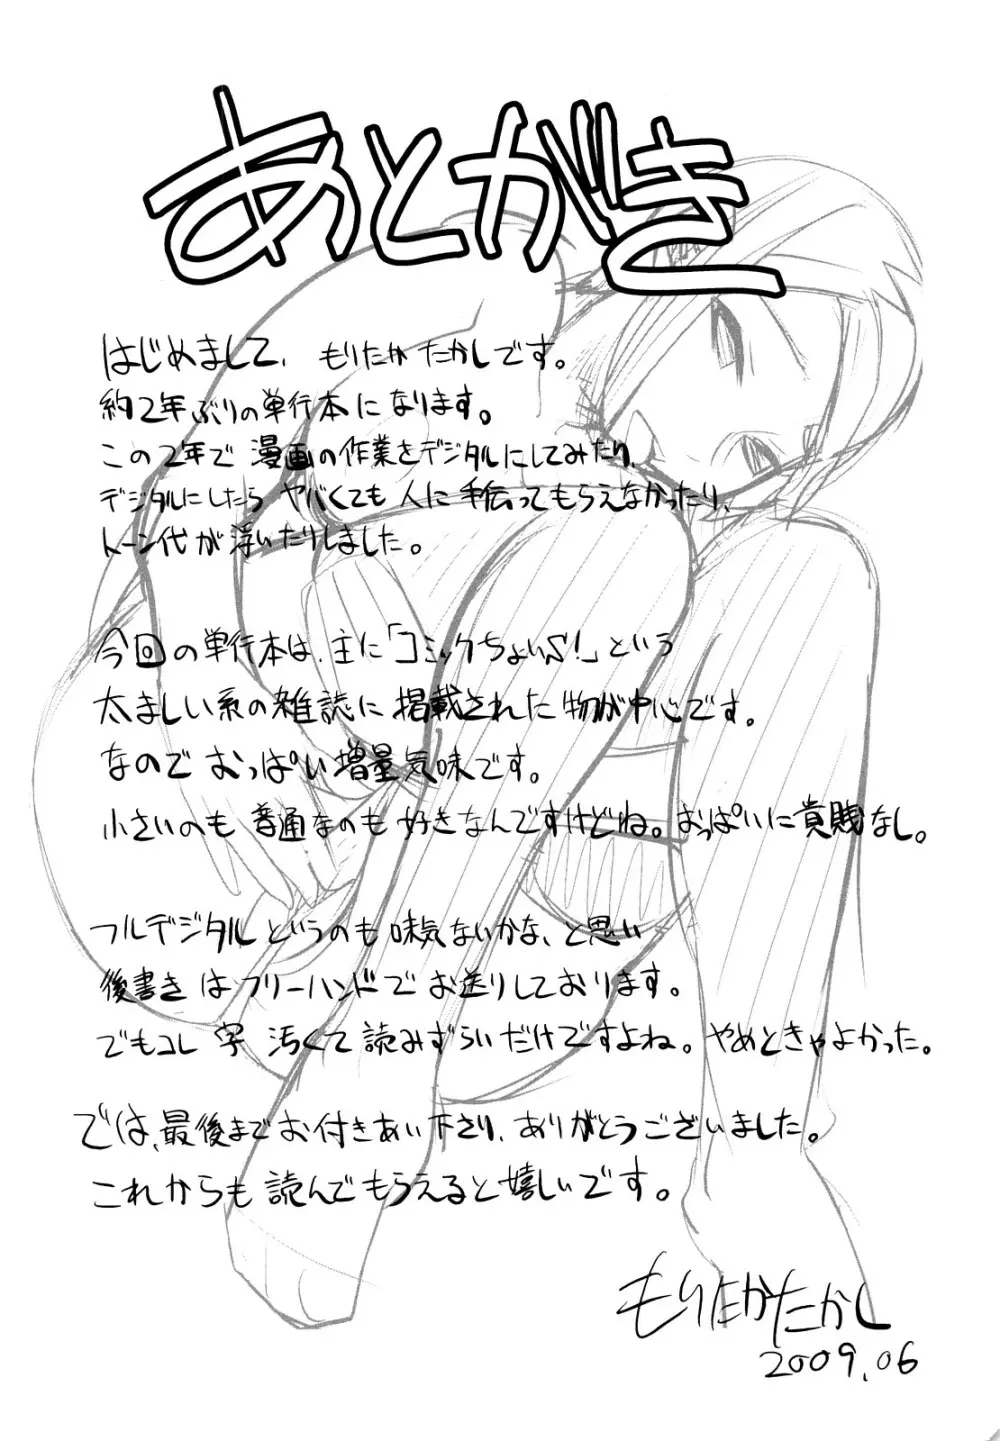 あとがき
はじめまして、もりたか たかしです。
約2年ぶりの単行本になります。
この2年で漫画の作業をデジタルにしてみたり、
デジタルにしたらヤバくても人に手伝ってもらえなかったり、
トーン代が浮いたりしました。
今回の単行本は、主に「コミックちょいS!」という
太ましい系の雑誌に掲載された物が中心です。
なのでおっぱい増量気味です。
小さいのも普通なのも好きなんですけどね。おっぱいに貴賎なし。
フルデジタルというのも味気ないかな、と思い
後書きはフリーハンドでお送りしております。
でもコレ字汚くて読みずらいだけですよね。やめときゃよかった。
では、最後までお付きあい下さり、ありがとうございました。
これからも読んでもらえると嬉しいです。
もりたかたかし
2009.06